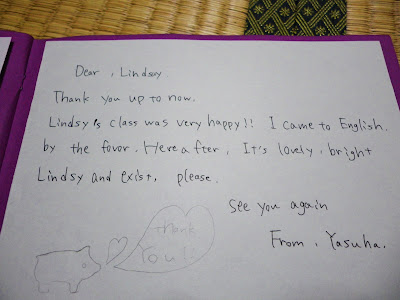 Dear, Lindsoy.
Thank you up to now.
Lindsy's class was very happy!! I came to English.
by the favor. Hereafter, It's lovely, bright
Lindsy and exist, please.
See you again
From, Yasuha.
Thank
You!